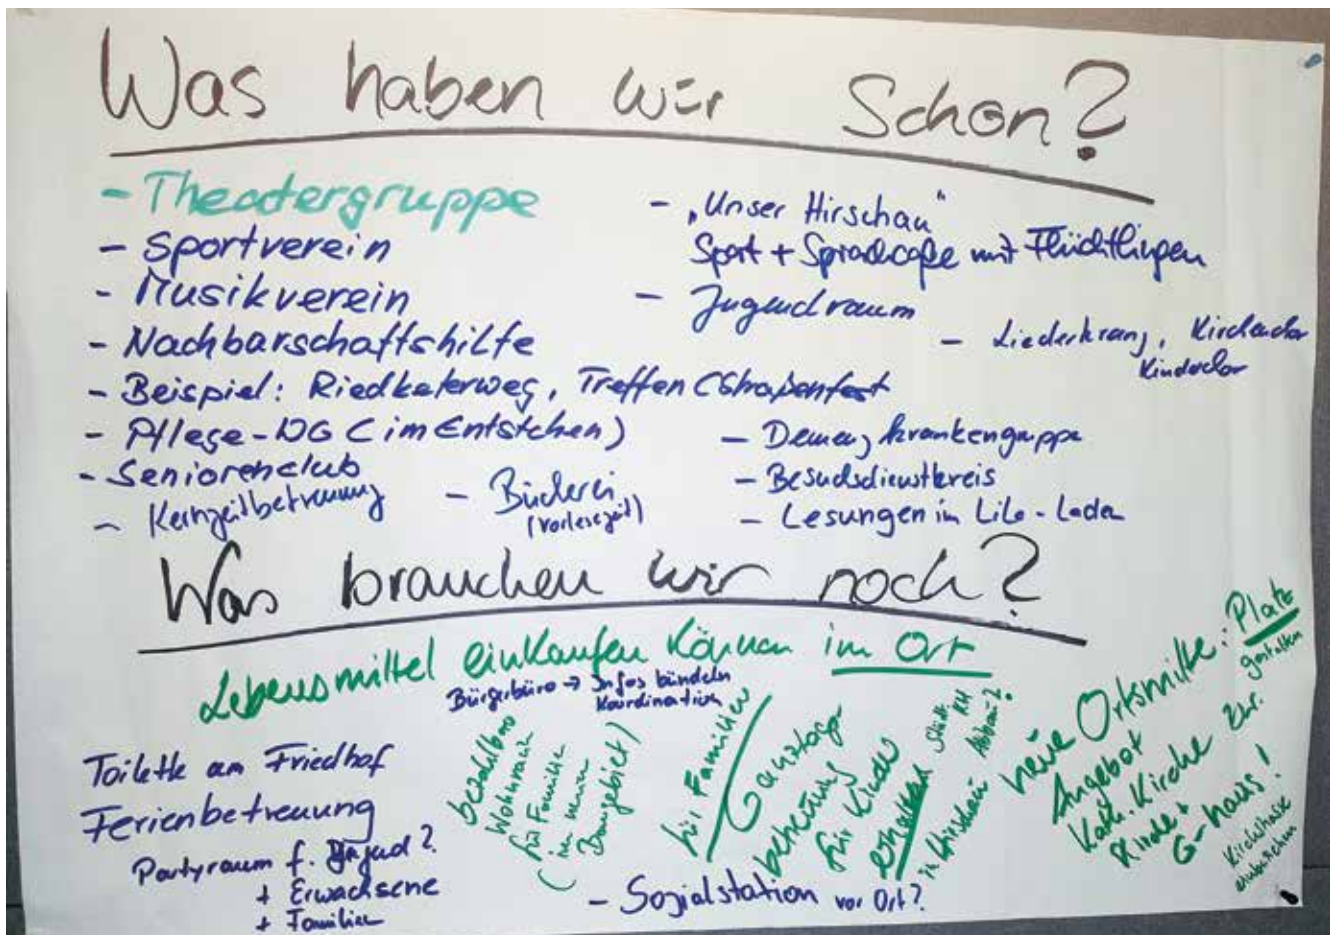 Was haben wir Schon?
- Theatergruppe
- Sportverein
- Musikverein
- Nachbarschaftshilfe
- Beispiel: Riedkaterweg, Treffen (Straßenfest
- Pflege-WG (im Entstehen)
- Seniorenclub
- Kernzeitbetreuung
- Bücherei
(Vorlesezeit)
- „Unser Hirschau“
Sport + Sprachcafe mit Flüchtlingen
- Jugendraum
- Liederkranz, Kirchenchor
Kinderchor
- Demenzkrankengruppe
- Besuchsdienstkreis
- Lesungen im Lilo-Laden
Was brauchen wir noch?
Lebensmittel einkaufen können im Ort
Bürgerbüro → Infos bündeln
Koordination
Toilette am Friedhof
Ferienbetreuung
Partyraum f. Jugend?
+ Erwachsene
+ Familien
bezahlbare
Wohnraum
für Familie
(in neuem
Baugebiet)
für Familien
Ganztags
betreuung
für Kinder
erhalten
in Hirschau
- Sozialstation vor Ort?
neue Ortsmitte: Platz
gestalten
Angebot
Kath. Kirche
Kirche +
G-haus!
Kirchstrasse